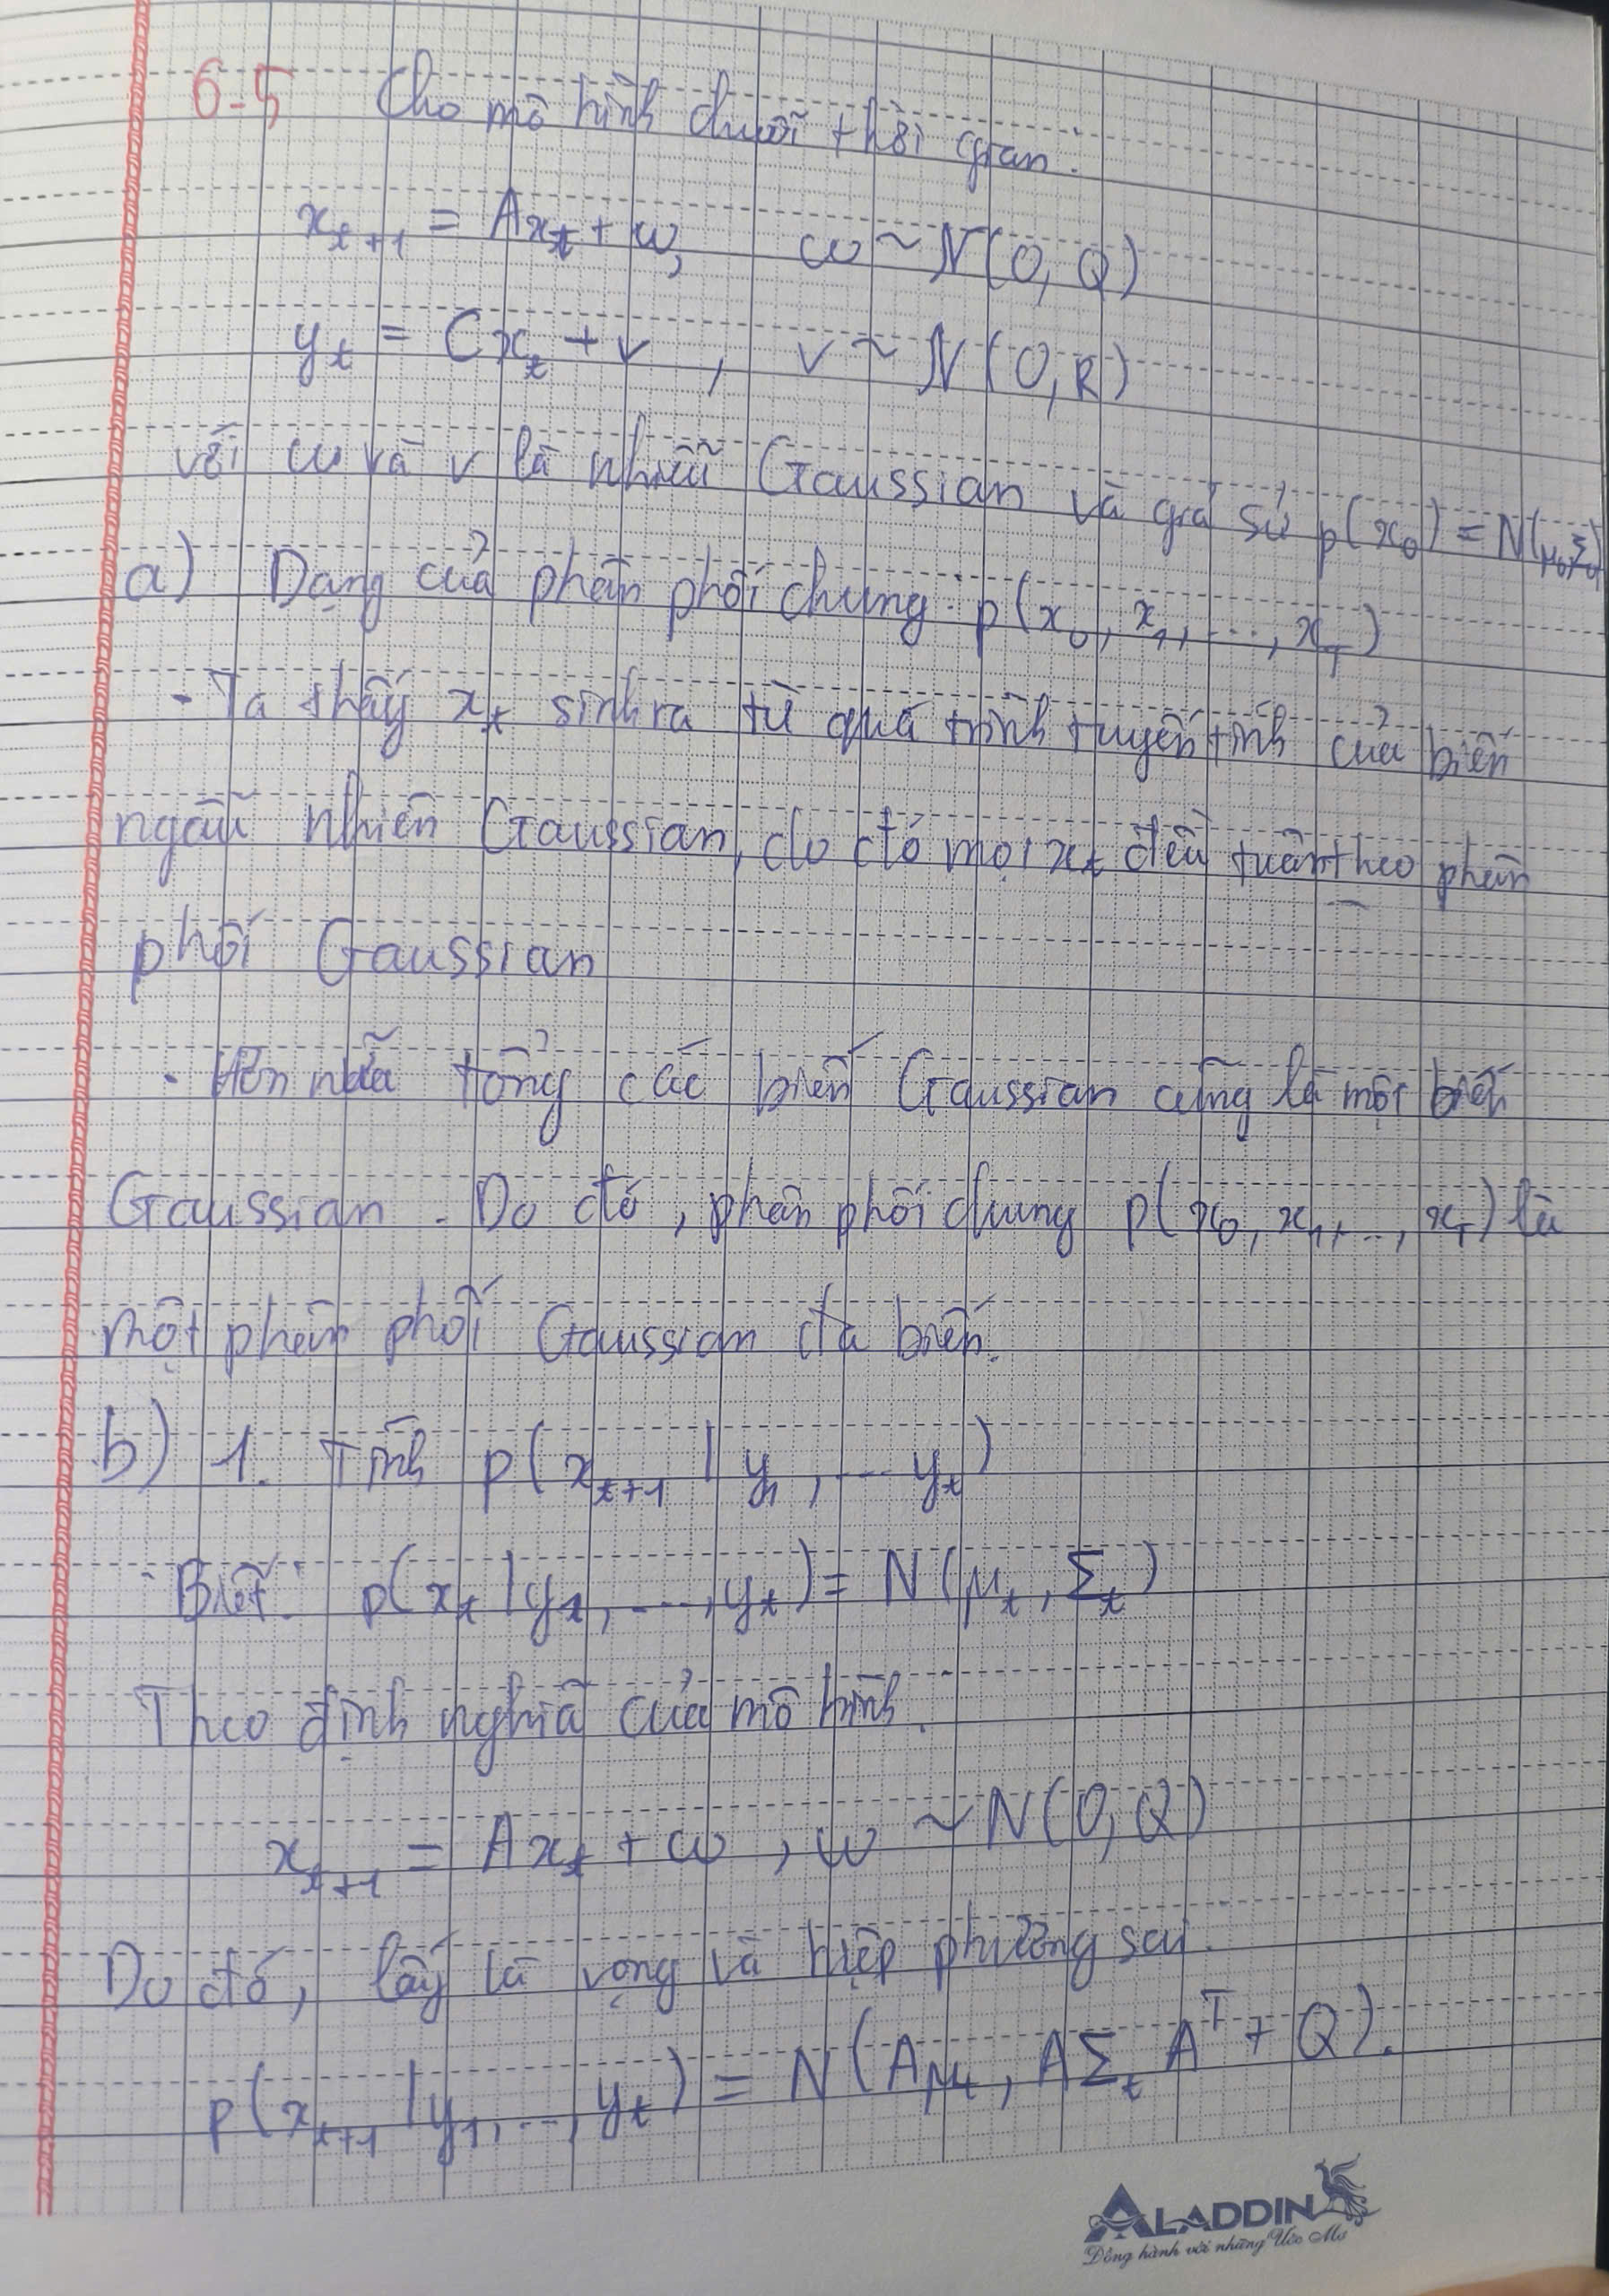 6-5 Cho mô hình chuỗi thời gian:
x_{t+1} = Ax_t + w, w ~ N(0, Q)
y_t = Cx_t + v, v ~ N(0, R)
với w và v là nhiễu Gaussian và giả sử p(x_0) = N(μ_0, Σ_0)
a) Dạng của phân phối chung p(x_0, x_1, ..., x_T)
- Ta thấy x_t sinh ra từ quá trình tuyến tính của biến
ngẫu nhiên Gaussian, do đó mọi x_t đều tuân theo phân
phối Gaussian
- Hơn nữa tổng các biến Gaussian cũng là một biến
Gaussian. Do đó, phân phối chung p(x_0, x_1, .., x_T) là
một phân phối Gaussian đa biến.
b) 1. Tính p(x_{t+1} | y_1, ... y_t)
Biết: p(x_t | y_1, ..., y_t) = N(μ_t, Σ_t)
Theo định nghĩa của mô hình.
x_{t+1} = Ax_t + w, w ~ N(0, Q)
Do đó, lấy là vọng và hiệp phương sai.
p(x_{t+1} | y_1, .., y_t) = N(Aμ_t, AΣ_t A^T + Q).
ALADDIN
Đồng hành với những Ước Mơ